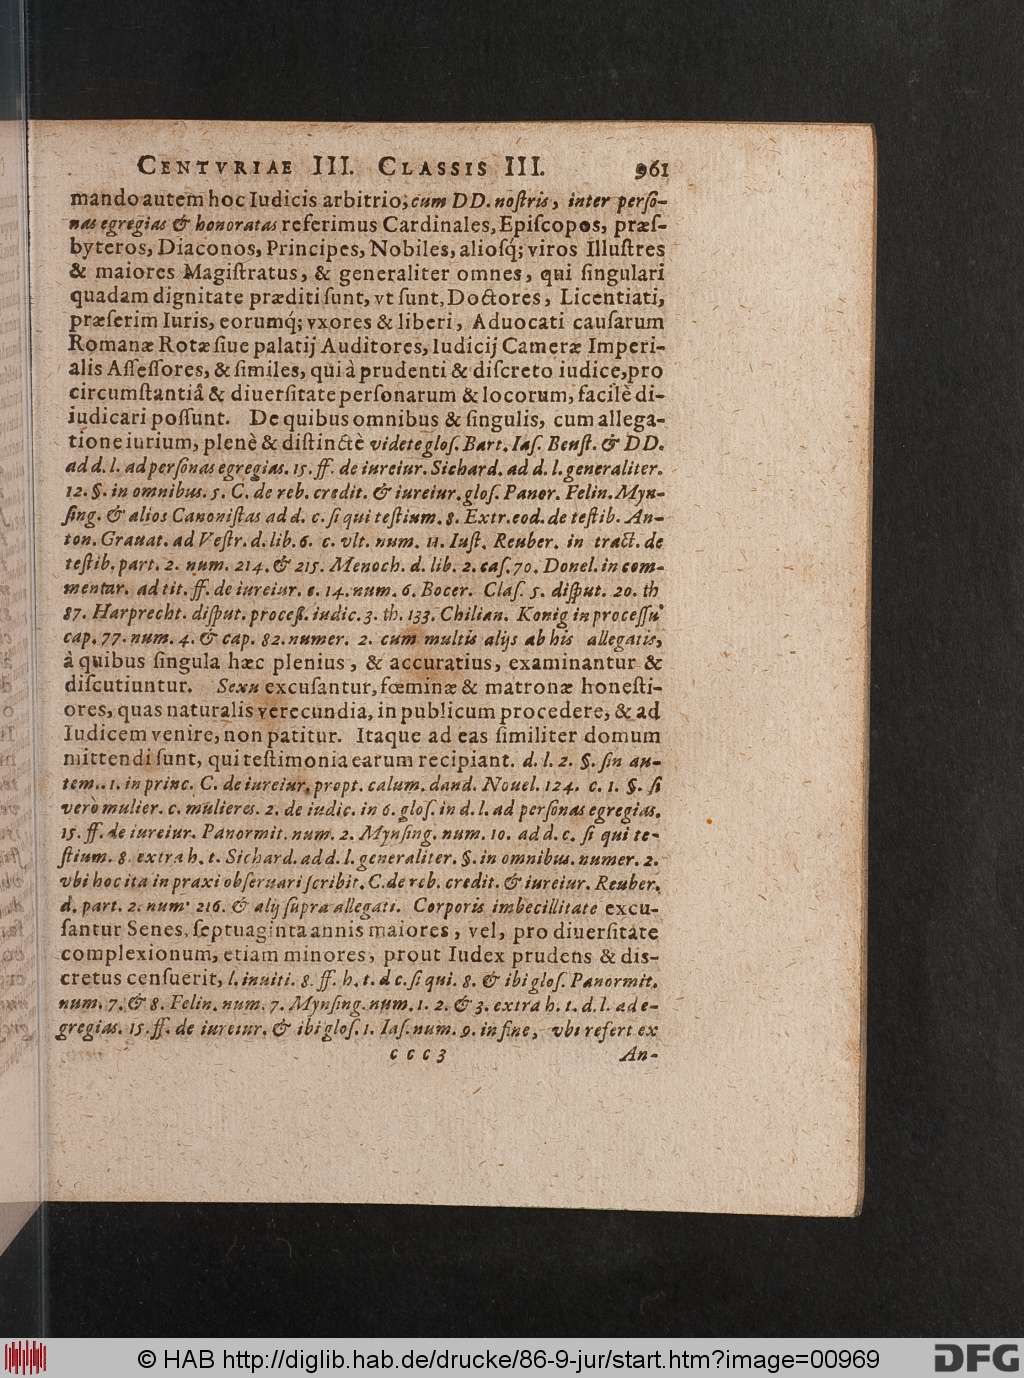 CENTVRIAE III. CLASSIS III. 961
mando autem hoc Iudicis arbitrio; cum DD. noſtris, inter perſo-
nas egregias & honoratas referimus Cardinales, Epiſcopos, præſ-
byteros, Diaconos, Principes, Nobiles, alioſq́; viros Illuſtres
& maiores Magiſtratus, & generaliter omnes, qui ſingulari
quadam dignitate præditi ſunt, vt ſunt, Doctores, Licentiati,
præſerim Iuris, eorumq́; vxores & liberi, Aduocati cauſarum
Romanæ Rotæ ſiue palatij Auditores, Iudicij Cameræ Imperi-
alis Aſſeſſores, & ſimiles, qui à prudenti & diſcreto iudice, pro
circumſtantiâ & diuerſitate perſonarum & locorum, facilè di-
iudicari poſſunt. De quibus omnibus & ſingulis, cum allega-
tione iurium, plenè & diſtinctè videte gloſ. Bart. Iaſ. Beuſt. & DD.
ad d. l. ad perſonas egregias. 15. ff. de iureiur. Sichard. ad d. l. generaliter.
12. §. in omnibus. 5. C. de reb. credit. & iureiur. gloſ. Panor. Felin. Myn-
ſing. & alios Canoniſtas ad d. c. ſi qui teſtium. 8. Extr. eod. de teſtib. An-
ton. Grauat. ad Veſtr. d. lib. 6. c. vlt. num. 11. Iuſt. Reuber. in tract. de
teſtib. part. 2. num. 214. & 215. Menoch. d. lib. 2. caſ. 70. Donel. in com-
mentar. ad tit. ff. de iureiur. c. 14. num. 6. Bocer. Claſ. 5. diſput. 20. th
87. Harprecht. diſput. proceſſ. iudic. 3. th. 133. Chilian. Konig in proceſſu
cap. 77. num. 4. & cap. 82. numer. 2. cum multis alijs ab his allegatis,
à quibus ſingula hæc plenius, & accuratius, examinantur &
diſcutiuntur. Sexu excuſantur, fœminæ & matronæ honeſti-
ores, quas naturalis verecundia, in publicum procedere, & ad
Iudicem venire, non patitur. Itaque ad eas ſimiliter domum
mittendi ſunt, qui teſtimonia earum recipiant. d. l. 2. §. ſin au-
tem. 1. in princ. C. de iureiur. propt. calum. dand. Nouel. 124. c. 1. §. ſi
verò mulier. c. mulieres. 2. de iudic. in 6. gloſ. in d. l. ad perſonas egregias.
15. ff. de iureiur. Panormit. num. 2. Mynſing. num. 10. ad d. c. ſi qui te-
ſtium. 8. extra h. t. Sichard. ad d. l. generaliter. §. in omnibus. numer. 2.
vbi hoc ita in praxi obſeruari ſcribit. C. de reb. credit. & iureiur. Reuber.
d. part. 2. num. 216. & alij ſupra allegati. Corporis imbecillitate excu-
ſantur Senes, ſeptuaginta annis maiores, vel, pro diuerſitate
complexionum, etiam minores, prout Iudex prudens & dis-
cretus cenſuerit, l. inuiti. 8. ff. h. t. d c. ſi qui. 8. & ibi gloſ. Panormit.
num. 7. & 8. Felin. num. 7. Mynſing. num. 1. 2. & 3. extra h. t. d. l. ad e-
gregias. 15. ff. de iureiur. & ibi gloſ. 1. Iaſ. num. 9. in fine, vbi refert ex
c c c 3 An-
© HAB http://diglib.hab.de/drucke/86-9-jur/start.htm?image=00969
DFG